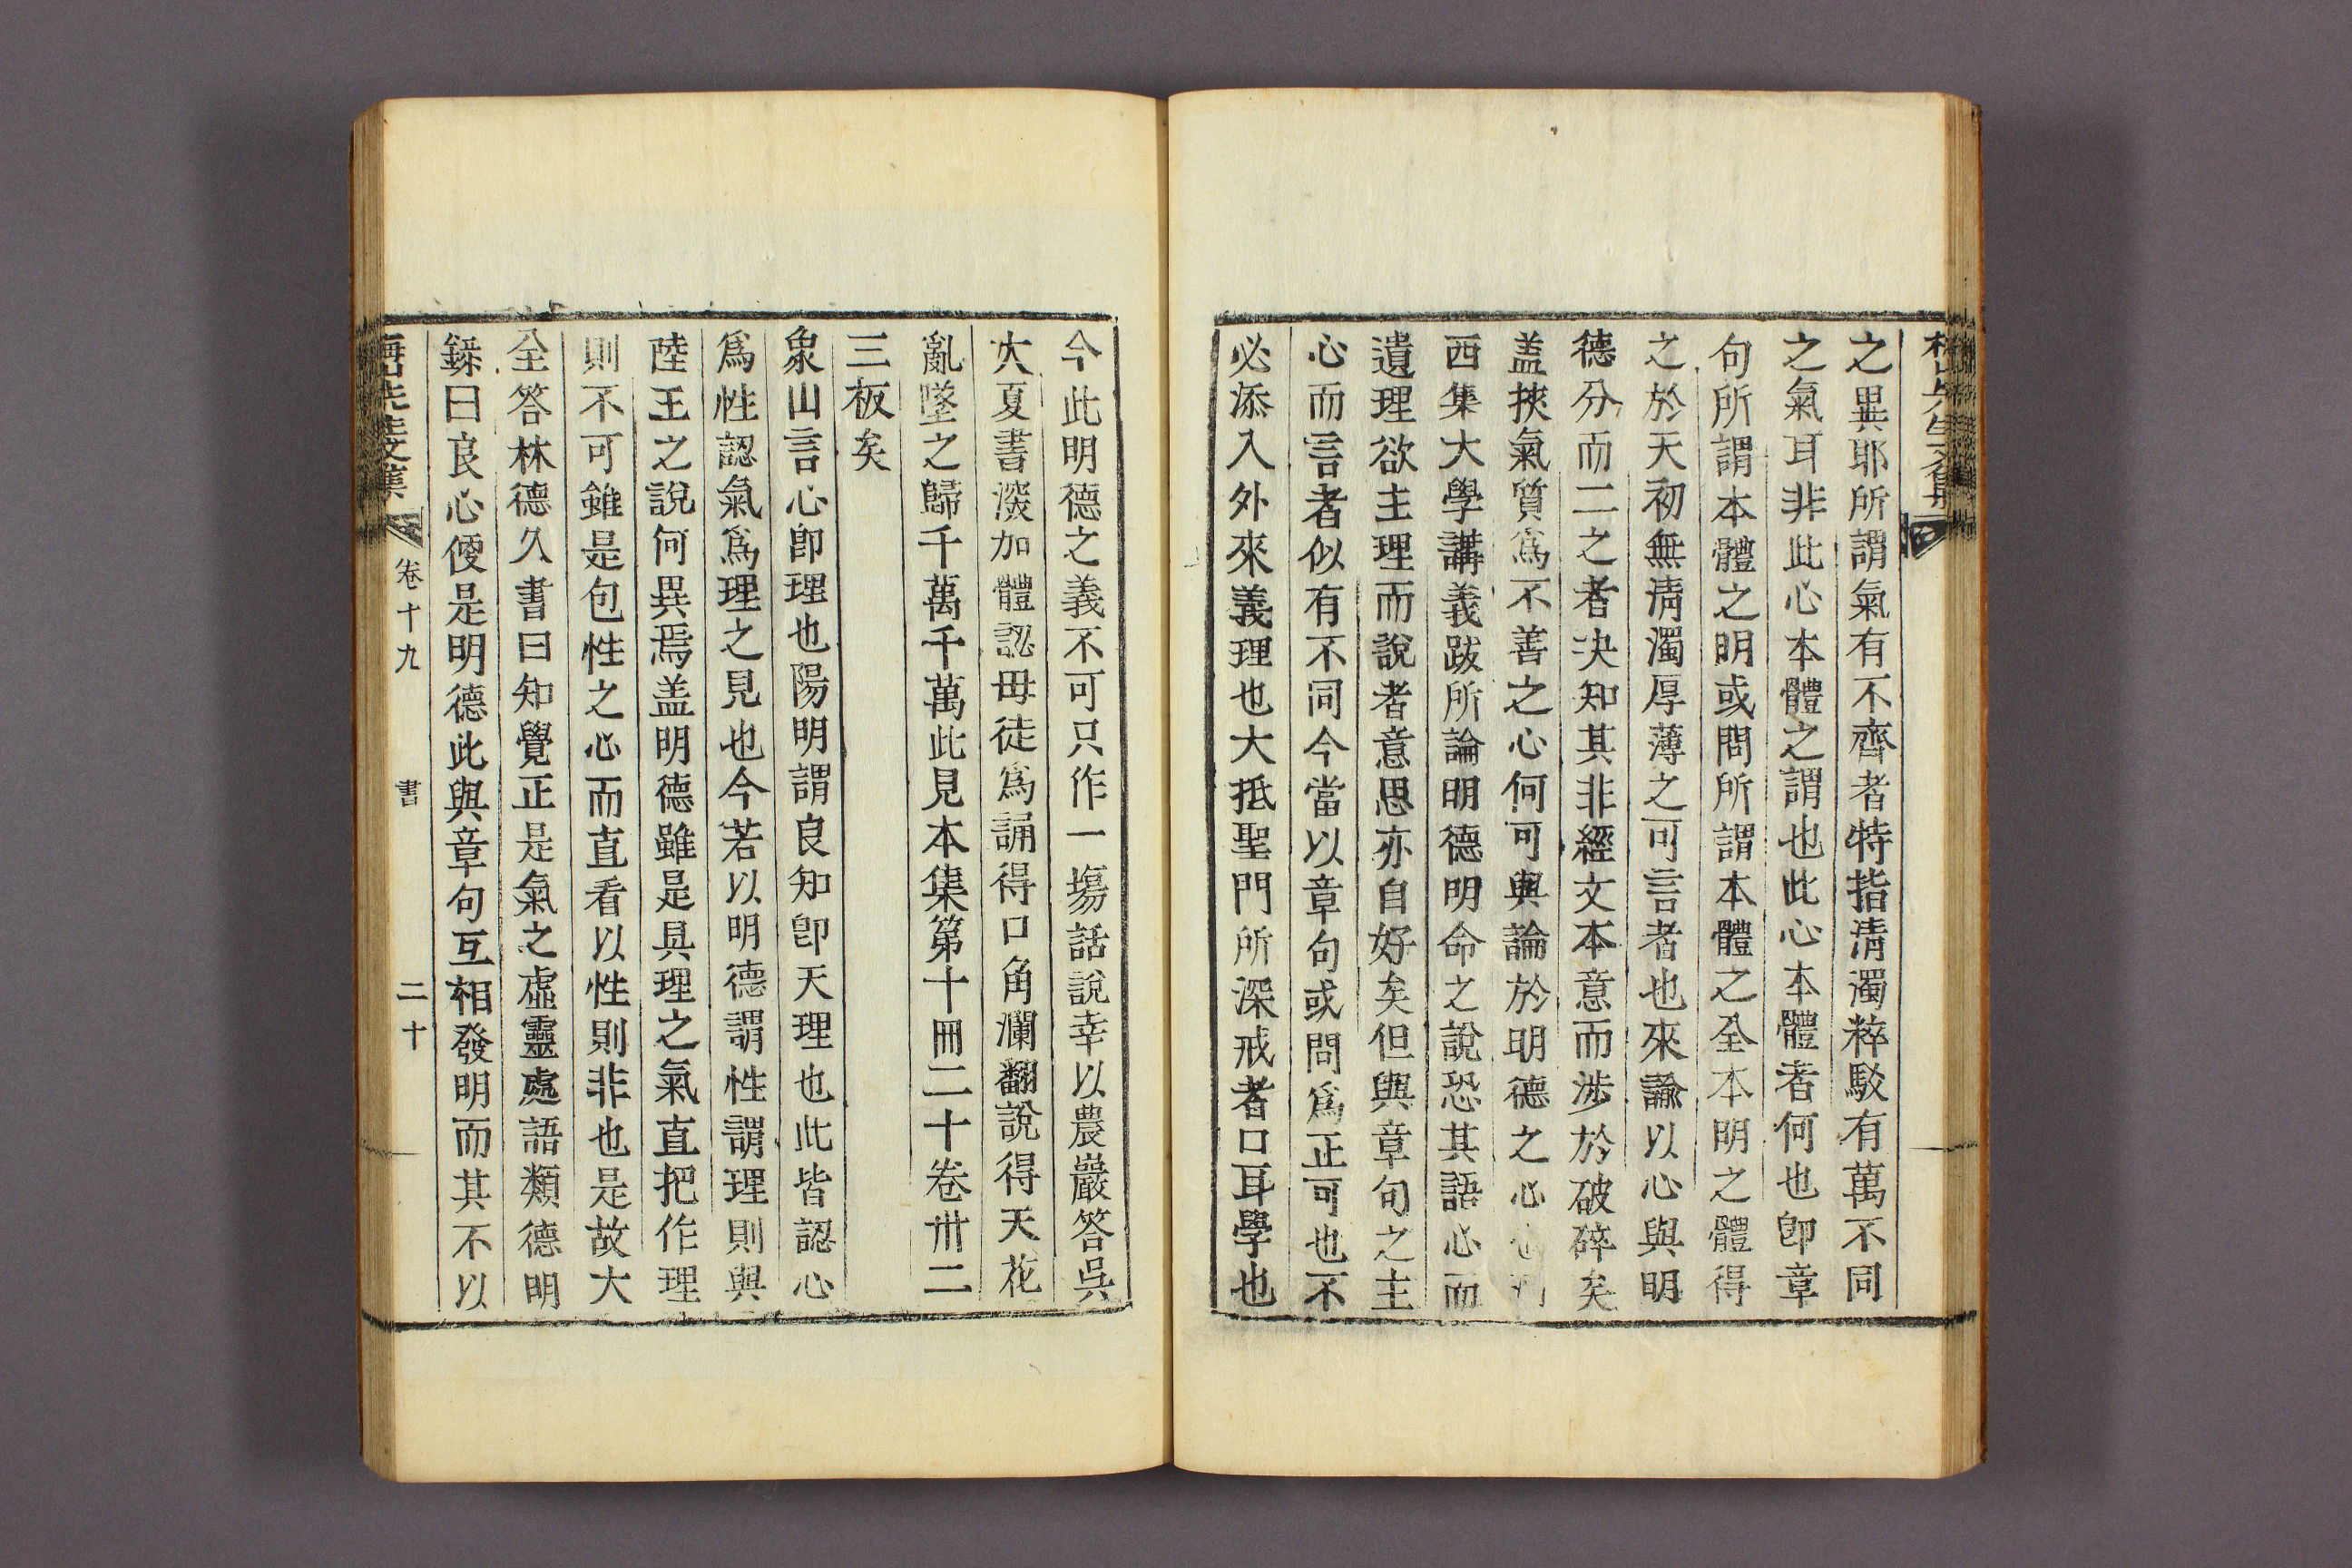 之異耶所謂氣有不齊者特指淸濁粹駁有萬不同
之氣耳非此心本體之謂也此心本體者何也卽章
句所謂本體之明或問所謂本體之全本明之體得
之於天初無淸濁厚薄之可言者也來諭以心與明
德分而二之者决知其非經文本意而涉於破碎矣
盖挾氣質爲不善之心何可與論於明德之心
西集大學講義跋所論明德明命之說恐其語心而
遺理欲主理而說者意思亦自好矣但與章句之主
心而言者似有不同今當以章句或問爲正可也不
必添入外來義理也大抵聖門所深戒者口耳學也
今此明德之義不可只作一塲話說幸以農巖答吳
大夏書深加體認毋徒爲誦得口角瀾翻說得天花
亂墜之歸千萬千萬此見本集第十冊二十卷卅二
三板矣
象山言心卽理也陽明謂良知卽天理也此皆認心
爲性認氣爲理之見也今若以明德謂性謂理則與
陸王之說何異焉盖明德雖是具理之氣直把作理
則不可雖是包性之心而直看以性則非也是故大
全答林德久書曰知覺正是氣之虛靈處語類德明
錄曰良心便是明德此與章句互相發明而其不以
梅山先生文集 卷十九 書 二十